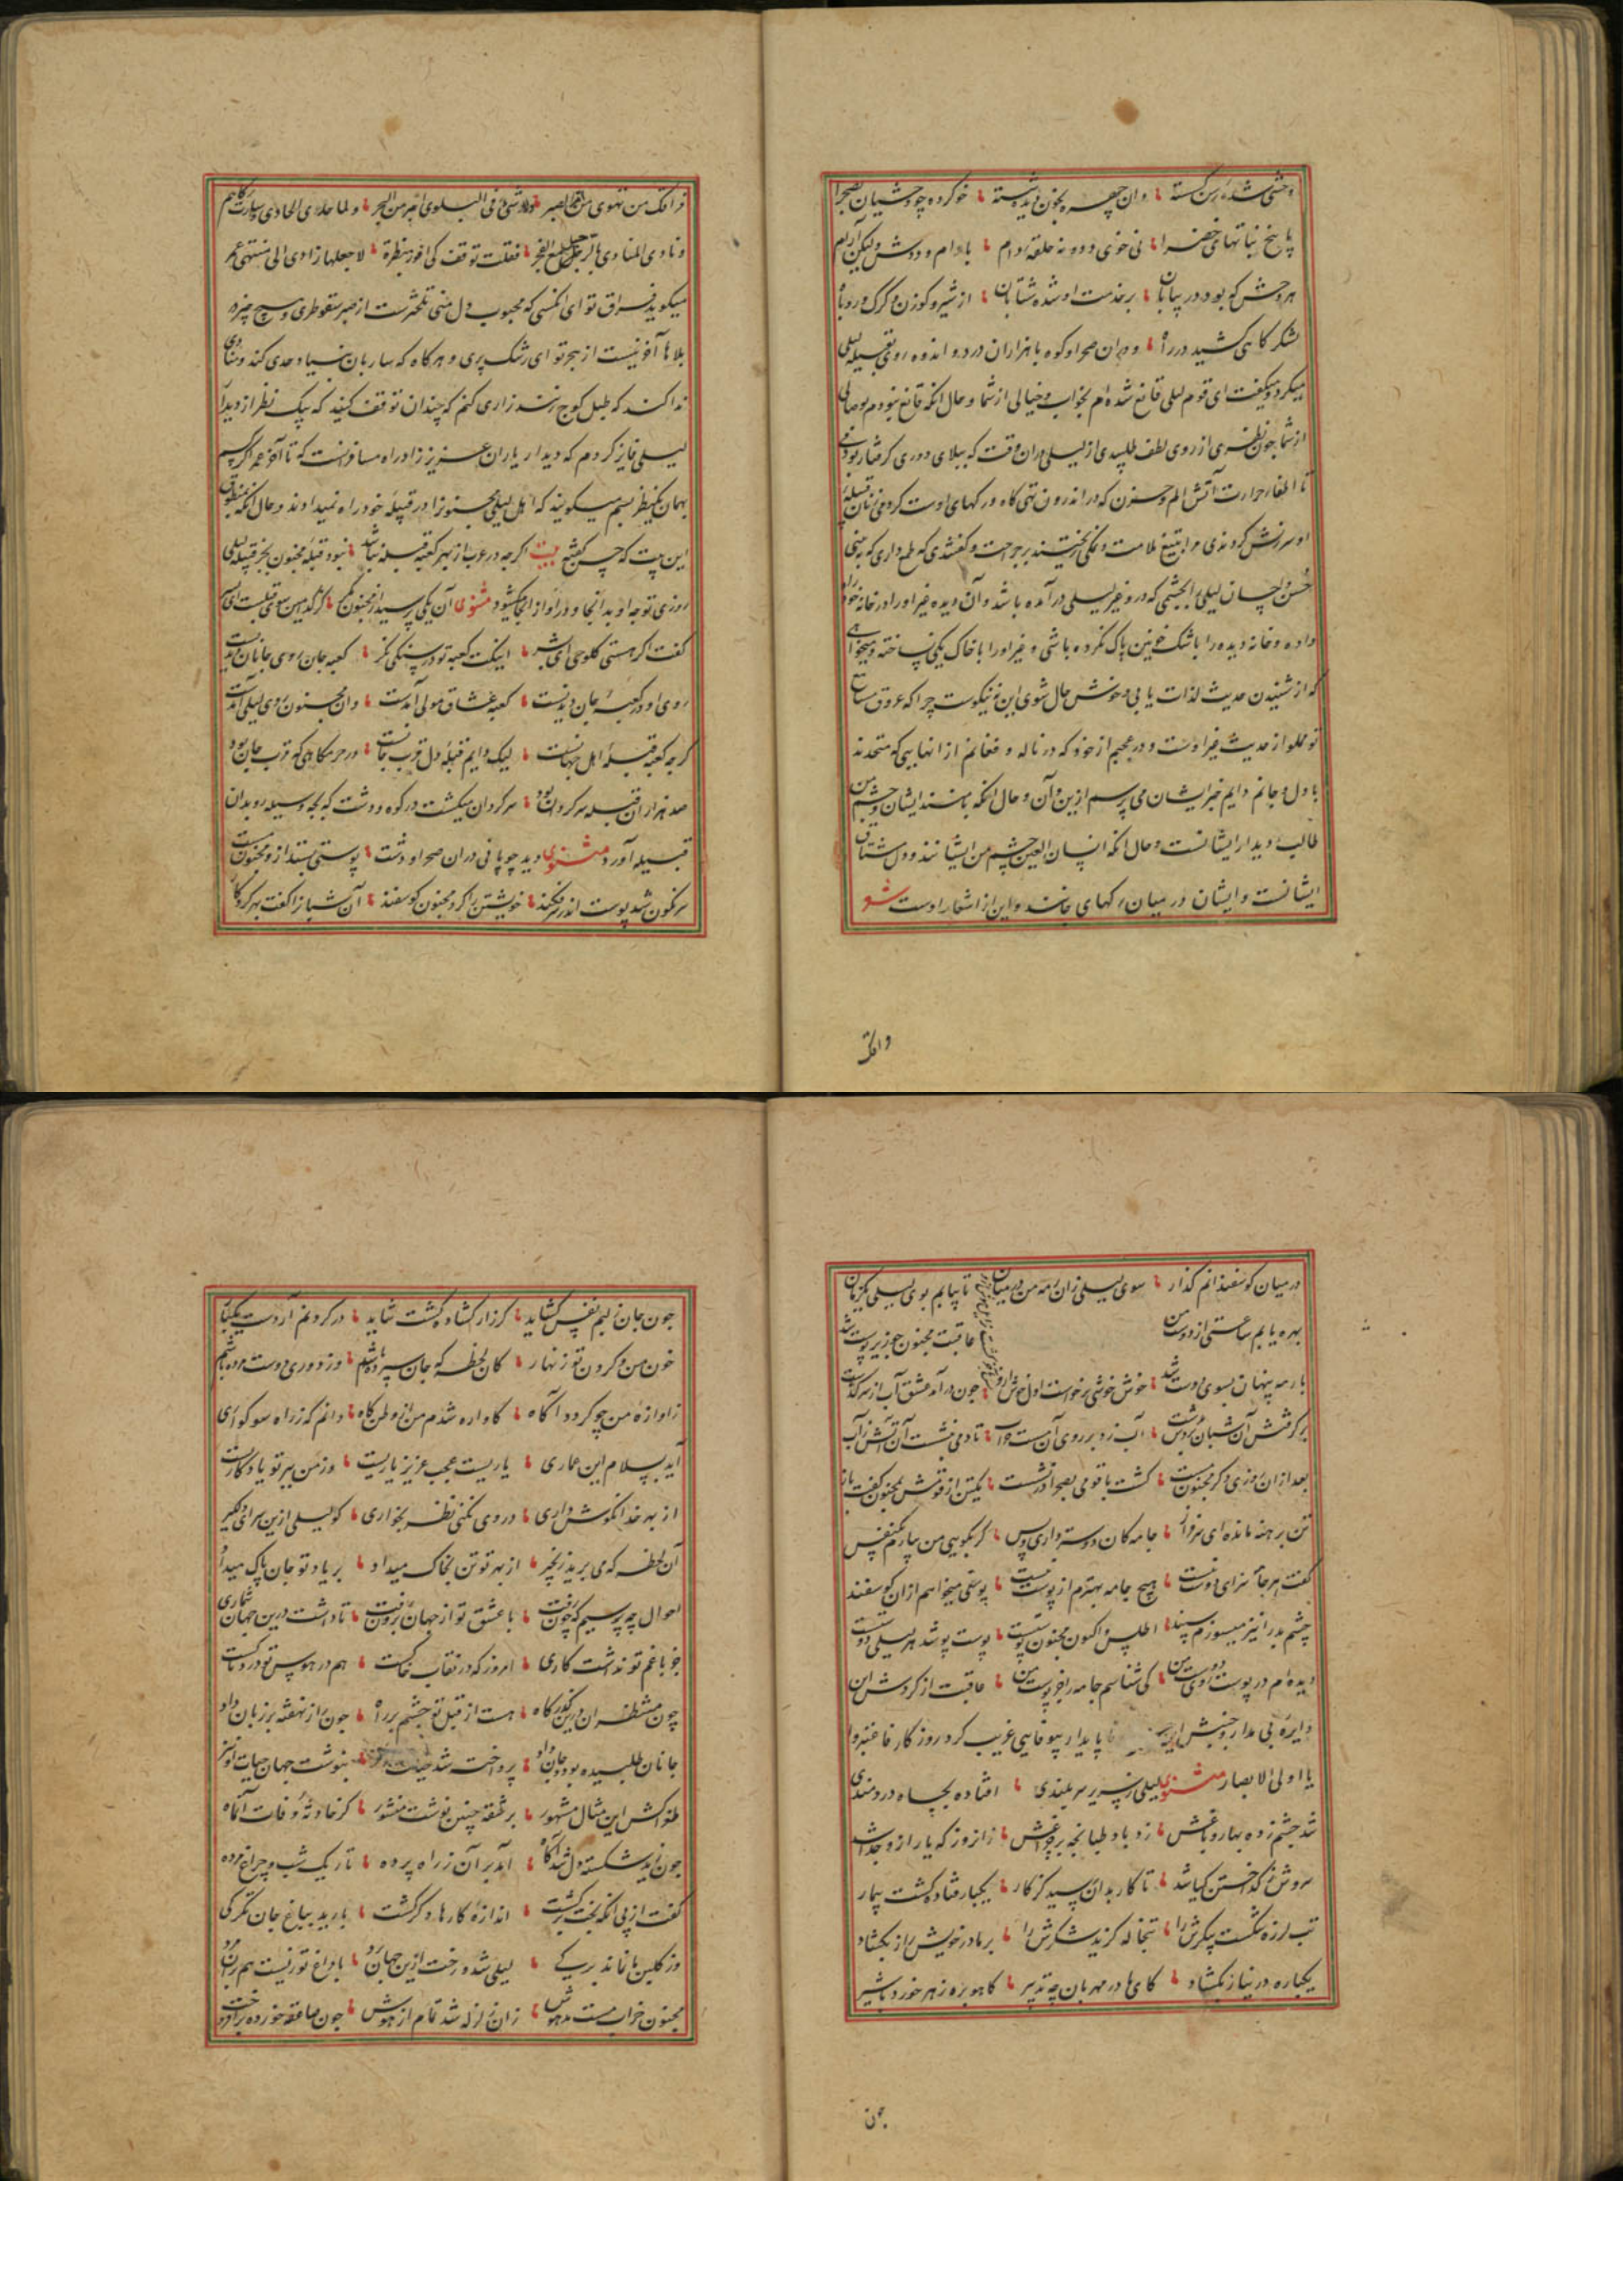 وحشی شده رسن گسسته وان چهره بخون دیده شسته خو کرده چو وحشیان بصحرا
با بیخ نباتهای خضرا نی خوی دد و نه حلقه دام با دام و ددش ولیکن آرام
هر وحش که بود در بیابان بر خدمت او شده شتابان از شیر و کوزن و کرک و روباه
لشکر کاهی کشید در راه و دران صحرا و کوه با هزاران درد و اندوه روی بقبیله لیلی
میکرد و میکفت ای قوم لیلی قانع شده ام بخواب و خیالی از شما و حال انکه قانع نبودم بوصال
از شما چون نظری از روی لطف طلبیدی از لیلی دران وقت که ببلای دوری کرفتار بودی
تا اطفاء حرارت آتش الم و حزن که در اندرون تهی کاه و رکهای اوست کردی زنان قبیله
او سرزنش کردندی و را بتیغ ملامت و نمکی ریختند بر جراحت و کفتندی که طمع داری که بینی
حسن لیلی را بچشمی که در و غیر لیلی در آمده باشد و آن دیده غیر او را در خانه خود راه
داده و خانه دیده را باشک خونین پاک نکرده باشی و غیر او را با خاک یکی نساخته و میخواهی
که از شنیدن حدیث لذات یابی و خوش حال شوی این نه نیکوست چرا که عروق مسامات
تو مملو از حدیث غیر اوست و در عجبم از خود که در ناله و فغانم از انهایی که متحدند
با دل و جانم دایم خبر ایشان می پرسم ازین و آن و حال انکه با منند ایشان و چشم من
طالب دیدار ایشانست و حال انکه انسان العین چشم من ایشانند و دل مشتاق
ایشانست و ایشان در میان رکهای جانند و این از اشعار اوست شعر
فراقک من تهوی امر من الصبر ولا شی فی البلوی امر من الهجر ولما حدی الحادی
و نادی المنادی بالرحیل مطلع الفجر فقلت توقف کی افوز بنظرة لاجعلها زادی الی منتهی عمر
میکوید فراق تو ای انکسی که محبوب دل منی تلخترست از صبر سقوطری و هیچ چیز در
بلاها آخر نیست از هجر تو ای رشک پری و هر کاه که ساربان بنیاد حدی کند و منادی
ندا کند که طبل کوچ زنند زاری کنم که چندان توقف کنید که بیک نظر از دیدار
لیلی فایز کردم که دیدار یاران عزیز زاد راه مسافرانست که تا آخر عمر اکر رسم
بهمان یک نظر رسم میکویند که اهل لیلی مجنونرا در قبیله خود راه نمیدادند و حال انکه بمنطوق
این بیت که بیت اکر چه در عرب از بهر کعبه قبله نباشد نبود قبله مجنون بجز قبیله لیلی
روزی توجه او بدانجا و در او از انجا میکشود مثنوی آن یکی پرسید از مجنون مکر کز کدامین سوی قبله است ای پسر
کفت اکر هستی کلوخی ای بشر اینکت کعبه تو در سنکی نکر کعبه جان روی جانان دیدنست
روی او در کعبه جان دیدنست کعبه عشاق مولی آمدست وان مجنون روی لیلی آمدست
کر چه کعبه قبله اهل جهانست لیک دایم قبله دل قرب جانست در حرمکاهی که قرب جان بود
صد هزاران قبله سرکردان بود سرکردان میکشت در کوه و دشت که بچه وسیله رو بدان
قبیله آورد مثنوی دید چوپانی دران صحرا و دشت پوستی بستد از و مجنون مست
سرنکون شد پوست اندر سر فکند خویشتن را کرد مجنون کوسفند آن شبانرا کفت بهر کردکار
والله
در میان کوسفندانم گذار سوی لیلی ران رمه من در میان تا بیابم بوی لیلی یکزمان
بهره یابم ساعتی از دوست من عاقبت مجنون چو زیر پوست شد
با رمه پنهان بسوی دوست شد خوش خوشی برخاست اول جوش ازو چون در آمد عشق آب از سر گذشت
بر کرفتش آن شبان بردش بدشت آب زد بر روی آن مست خراب تا دمی بنشست آن آتش ز آب
بعد ازان روزی دکر مجنون مست کشت با قومی بصحرا در نشست یکتن از قومش بمجنون کفت باز
تن برهنه مانده ای سرفراز جامه کان دوست تر داری و بس کر بکویی من بیارم یکنفس
کفت هر جامه سزای دوست نیست هیچ جامه بهترم از پوست نیست پوستی میخواهم ازان کوسفند
چشم بد را نیز میسوزم سپند اطلس و اکسون مجنون پوستست پوست پوشد هر که لیلی دوستست
دیده ام در پوست بوی دوست من کی شناسم جامه را جز پوست من عاقبت از کردش این
دایره بی مدار و جنبش این ناپایدار بیوفایی غریب کرد روزکار فاعتبروا
یا اولی الابصار مثنوی لیلی ز سریر سربلندی افتاده بچاه دردمندی
شد چشم زده بهار و باغش زد باد طپانچه بر چراغش زان روز که یار ازو جدا شد
سروش ز کداختن کیا شد تا کار بدان رسید کز کار یکبار فتاد و کشت بیمار
تب لرزه شکست پیکرش را تبخاله کزید شکرش را بر مادر خویش راز بکشاد
یکباره در نیاز بکشاد کای مادر مهربان چه تدبیر کاهو بره زهر خورد با شیر
چون
چون جان ز لبم نفس کشاید کر راز کشاده کشت شاید در کردنم آر دست یکبار
خون من و کردن تو زنهار کان لحظه که جان سپرده باشم وز دوری دوست مرده باشم
ز آوازه من چو کردد آکاه کاواره شدم من از وطن کاه دانم که ز راه سوکواری
آید بسلام این عماری یاریست عجب عزیز یاریست وز من ببر تو یادکاریست
از بهر خدا نکوش داری در وی نکنی نظر بخواری کو لیلی ازین سرای دلکیر
آن لحظه که می برید زنجیر از بهر تو تن بخاک میداد بر یاد تو جان پاک میداد
احوال چه پرسیم که چون رفت با عشق تو از جهان برون رفت تا داشت درین جهان شماری
جز با غم تو نداشت کاری امروز که در نقاب خاکست هم در هوس تو دردناکست
چون منتظران درین کذرکاه هست از قبل تو چشم بر راه چون راز نهفته بر زبان داد
جانان طلبیده بود و جان داد پرداخت شد بنوشت جهان حیات او نیز
طغراکش این مثال مشهور بر شقه چنین نوشت منشور کز حادثه وفات آن ماه
چون زید شکسته دل شد آکاه آمد بر آن ز راه برده تاریک شب و چراغ مرده
کفت از پی انکه بخت برکشت اندازه کارها دکر کشت بارید بباغ جان تکرکی
وز کلبن ما نماند برکی لیلی شد و رخت ازین جهان برد با داغ تو زیست هم بران مرد
مجنون خراب مست مدهوش زان زلزله شد تمام از هوش چون صاعقه خورده بر درخت